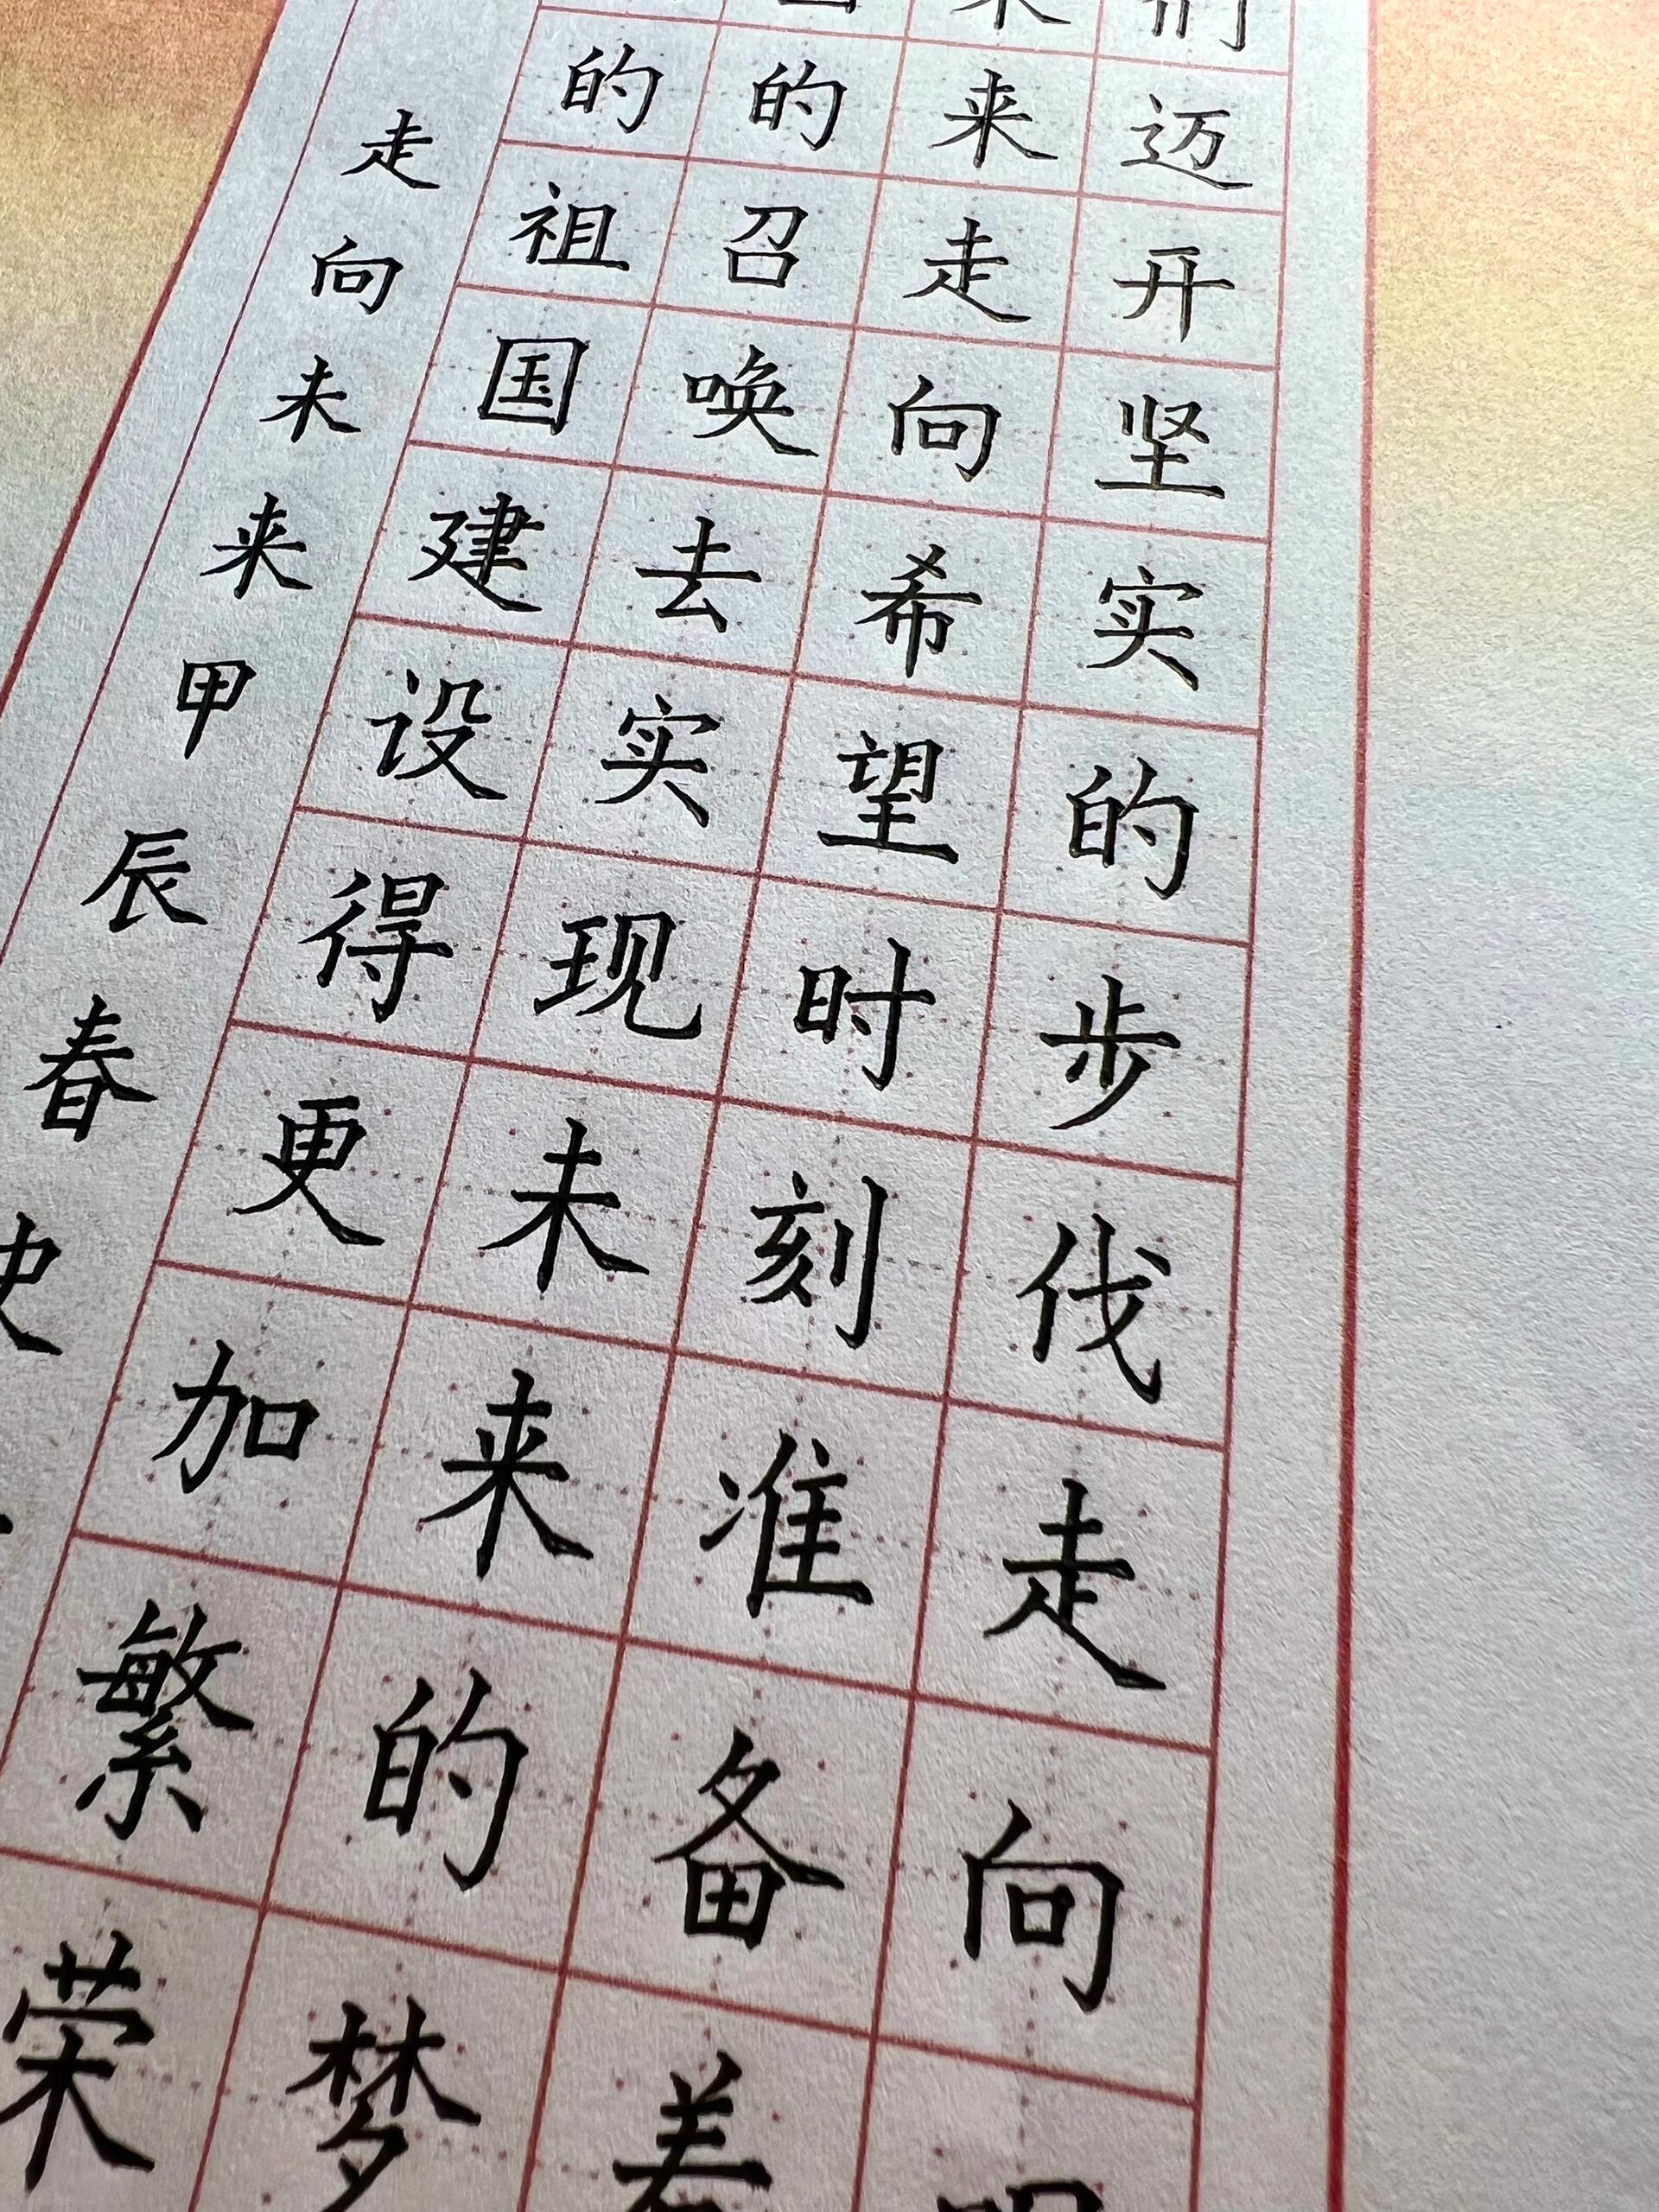 们迈开坚实的步伐走向
来走向希望时刻准备着
的召唤去实现未来的梦
的祖国建设得更加繁荣
走向未来甲辰春